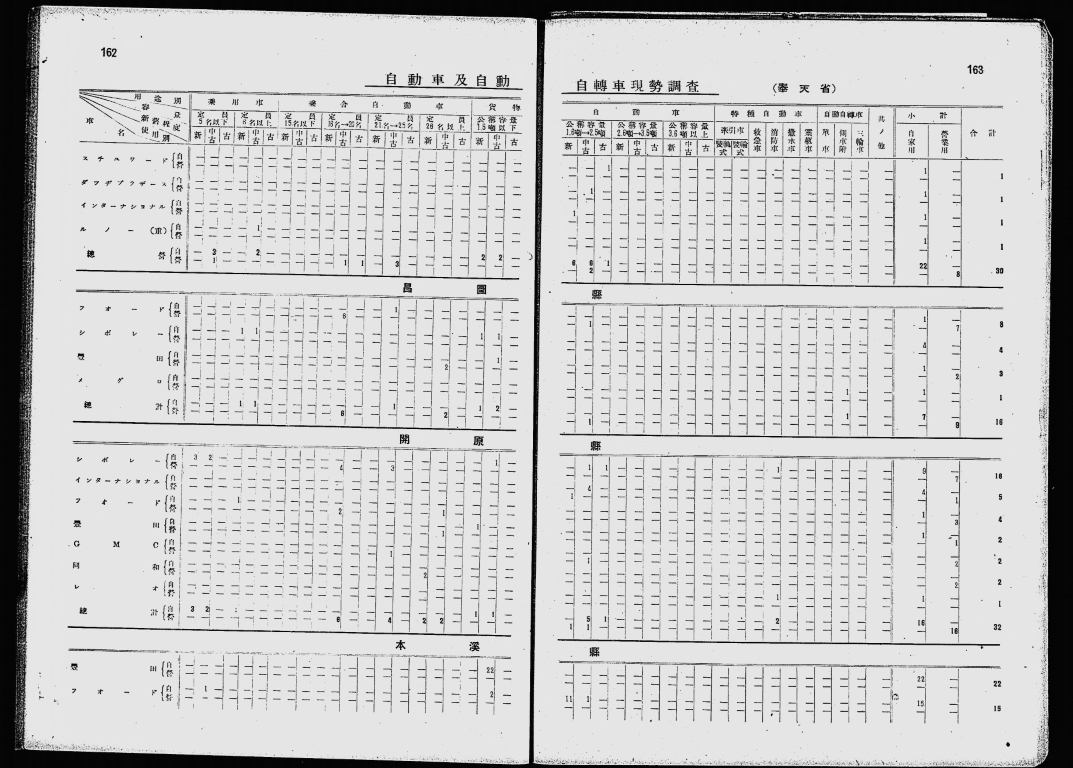 162
自動車及自動
用途別
容量
新舊程度
使用別
車名
乘用車
乘合自動車
貨物
定員5名以下
定員6名以上
定員15名以下
定員16名→20名
定員21名→25名
定員26名以上
公稱容量1.5噸以下
新 中古 古 新 中古 古 新 中古 古 新 中古 古 新 中古 古 新 中古 古 新 中古 古
スチルワード 自
營
ダツヂブラザース 自
營
インターナショナル 自
營
ルノー(重) 自 1
營
總營 自 3 2 2 2
營 1 1 1 3
昌圖
フオード 自 1
營 6
シボレー 自 1 1 1 1
營
豐田 自 1
營 2
メグロ 自
營
總計 自 1 1 1 1 2
營 6 2
開原
シボレー 自 3 2 1
營 4 3
インターナショナル 自
營
フオード 自 1
營 2 1
豐田 自 1
營 1
GMC 自
營 1
同和 自
營 2
レオ 自
營
總計 自 3 2 1 1
營 6 4 2 2
本溪
豐田 自 22
營
フオード 自 1 2
營
163
自轉車現勢調査
(奉天省)
自動車
特種自動車
自動自轉車
其ノ他
小計
合計
公稱容量1.6噸→2.5噸
公稱容量2.6噸→3.5噸
公稱容量3.6噸以上
牽引車
救急車
消防車
撒水車
靈柩車
單車
側車附
三輪車
自家用
營業用
新 中古 古 新 中古 古 新 中古 古
1 1
1
1 1
1
1 1
1
1
1
6 6 1 22
2 8 30
縣
1
1 7 8
4
4
1
2 3
1
1
1 7
1 9 16
縣
1 1 1 9
7 16
4 4
1 1 5
1
3 4
1
1 2
1
2 2
2 2
1
1
5 1 2 16
1 1 16 32
縣
22
22
11 1 15
15